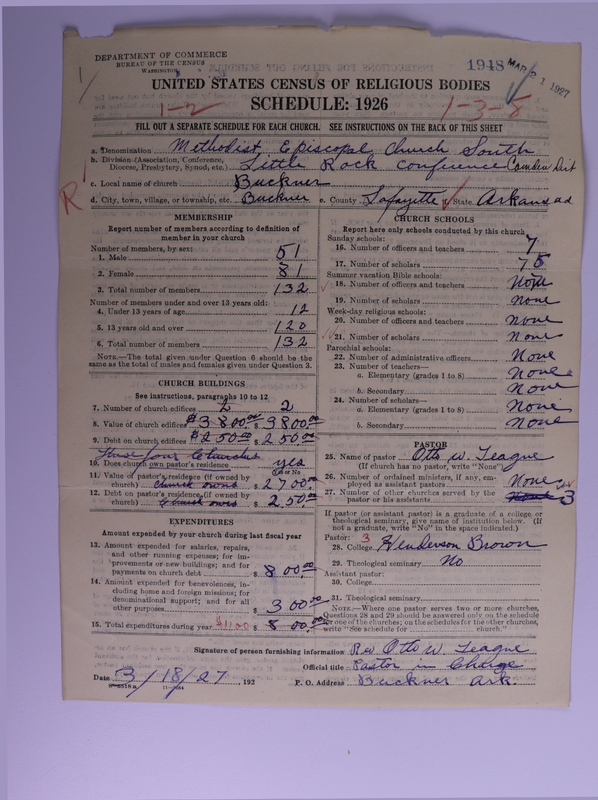 DEPARTMENT OF COMMERCE
BUREAU OF THE CENSUS
WASHINGTON
1948 MAR 21 1927
UNITED STATES CENSUS OF RELIGIOUS BODIES
SCHEDULE: 1926
1-2
1-3-8
FILL OUT A SEPARATE SCHEDULE FOR EACH CHURCH. SEE INSTRUCTIONS ON THE BACK OF THIS SHEET
a. Denomination Methodist Episcopal Church South
b. Division (Association, Conference, Diocese, Presbytery, Synod, etc.) Little Rock Conference Camden Dist
c. Local name of church Buckner
R
d. City, town, village, or township, etc. Buckner e. County Lafayette f. State Arkansas
MEMBERSHIP
Report number of members according to definition of
member in your church
Number of members, by sex:
1. Male 51
2. Female 81
3. Total number of members 132
Number of members under and over 13 years old:
4. Under 13 years of age 12
5. 13 years old and over 120
6. Total number of members 132
NOTE.—The total given under Question 6 should be the
same as the total of males and females given under Question 3.
CHURCH BUILDINGS
See instructions, paragraphs 10 to 12
7. Number of church edifices 2 2
8. Value of church edifices $3800.00 3800.00
9. Debt on church edifices $250.00 250.00
These four Churches
10. Does church own pastor's residence yes
Yes or No
11. Value of pastor's residence (if owned by
church) Church owns $ 2700.00
12. Debt on pastor's residence (if owned by
church) Church owns $ 250.00
EXPENDITURES
Amount expended by your church during last fiscal year
13. Amount expended for salaries, repairs,
and other running expenses; for im-
provements or new buildings; and for
payments on church debt $ 800.00
14. Amount expended for benevolences, in-
cluding home and foreign missions; for
denominational support; and for all
other purposes $ 300.00
15. Total expenditures during year $1100 $ 800.00
CHURCH SCHOOLS
Report here only schools conducted by this church
Sunday schools:
16. Number of officers and teachers 7
17. Number of scholars 75
Summer vacation Bible schools:
18. Number of officers and teachers None
19. Number of scholars None
Week-day religious schools:
20. Number of officers and teachers None
21. Number of scholars None
Parochial schools:
22. Number of administrative officers None
23. Number of teachers—
a. Elementary (grades 1 to 8) None
b. Secondary None
24. Number of scholars—
a. Elementary (grades 1 to 8) None
b. Secondary None
PASTOR
25. Name of pastor Otto W. Teague
(If church has no pastor, write "None")
26. Number of ordained ministers, if any, em-
ployed as assistant pastors None
27. Number of other churches served by the
pastor or his assistants 3
If pastor (or assistant pastor) is a graduate of a college or
theological seminary, give name of institution below. (If
not a graduate, write "No" in the space indicated.)
Pastor: 3
28. College Henderson Brown
29. Theological seminary No
Assistant pastor:
30. College
31. Theological seminary
NOTE.—Where one pastor serves two or more churches,
Questions 28 and 29 should be answered only on the schedule
for one of the churches; on the schedules for the other churches,
write "See schedule for church."
Signature of person furnishing information Rev Otto W. Teague
Official title Pastor in Charge
Date 3/18/27, 192
P. O. Address Buckner Ark.